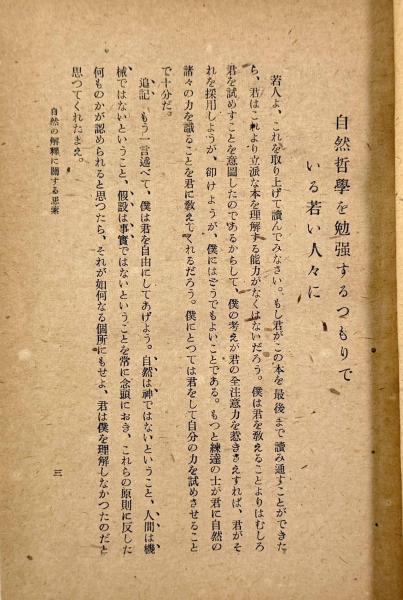 自然哲學を勉强するつもりで
いる若い人々に
若人よ、これを取り上げて讀んでみなさい。もし君がこの本を最後まで讀み通すことができた
ら、君はこれより立派な本を理解する能力がなくはないだろう。僕は君を敎えることよりはむしろ
君を試めすことを意圖したのであるからして、僕の考えが君の全注意力を惹きさえすれば、君がそ
れを採用しようが、卻けようが、僕にはどうでもよいことである。もつと練達の士が君に自然の
諸々の力を識ることを君に敎えてくれるだろう。僕にとつては君をして自分の力を試めさせること
で十分だ。
追記、もう一言述べて、僕は君を自由にしてあげよう。自然は神ではないということ、人間は機
械ではないということ、假設は事實ではないということを常に念頭におき、これらの原則に反した
何ものかが認められると思つたら、それが如何なる個所にもせよ、君は僕を理解しなかつたのだと
思つてくれたまえ。
自然の解釋に關する思索
三